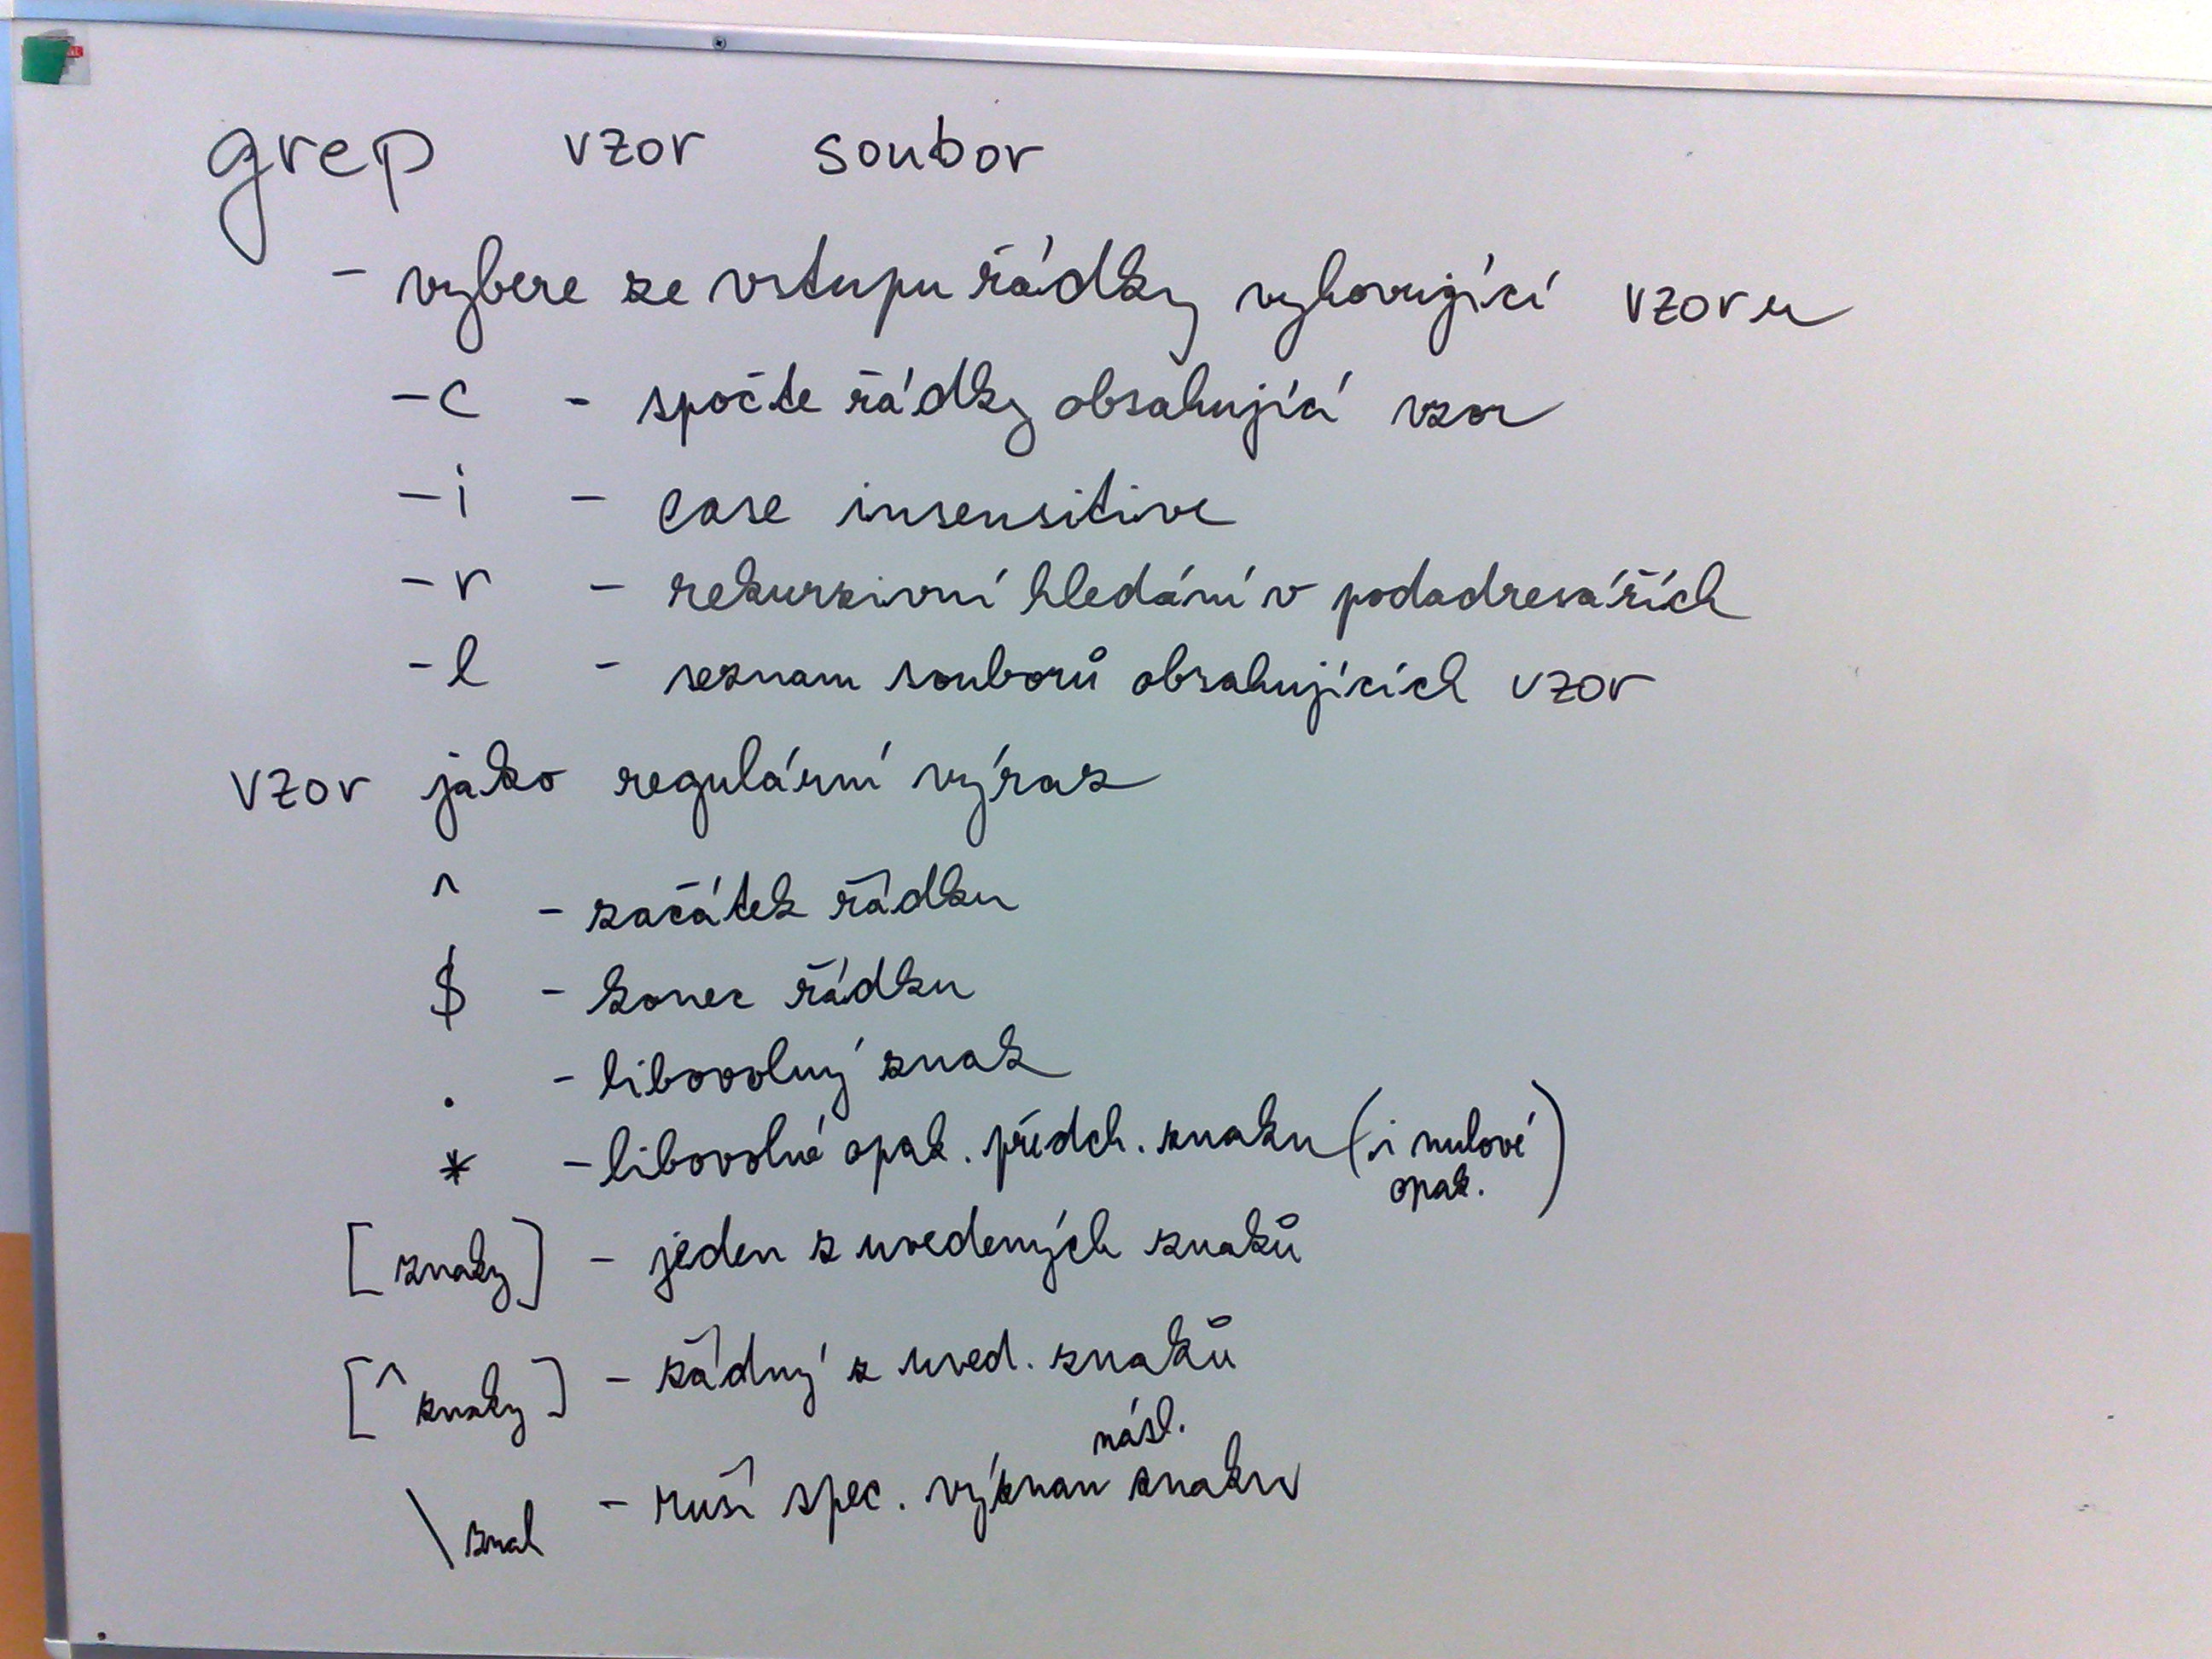 grep vzor soubor
- vybere ze vstupu řádky vyhovující vzoru
-c - spočte řádky obsahující vzor
-i - case insensitive
-r - rekurzivní hledání v podadresářích
-l - seznam souborů obsahujících vzor
vzor jako regulární výraz
^ - začátek řádku
$ - konec řádku
. - libovolný znak
* - libovolné opak. předch. znaku (i nulové opak.)
[znaky] - jeden z uvedených znaků
[^znaky] - žádný z uved. znaků
násl.
\znak - ruší spec. význam znaku